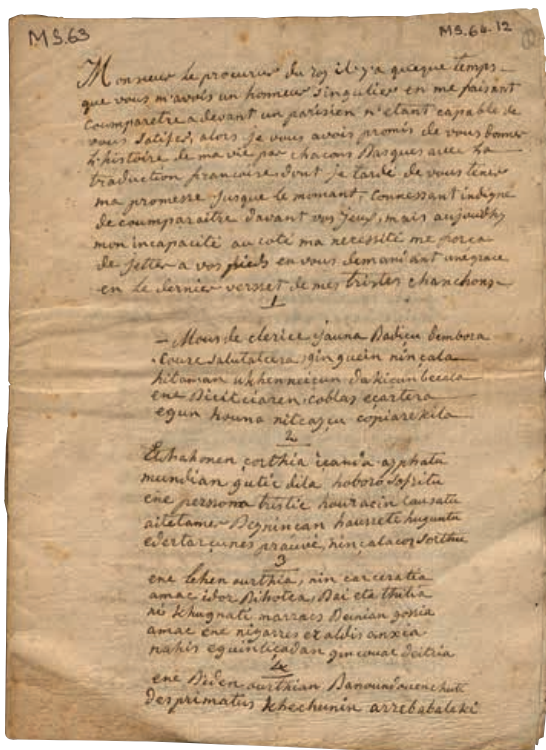 MS.63
MS.64.12
Monsieur Le procurur du roy il y'a queque temps
que vous m'avois un honneur singulier en me faisant
Coumparetre a devant un parisien n'etant capable de
vous Satifer, alors je vous avois promis de vous donner
L'histoire de ma vie par chacons Basques avec La
traduction francoise, dont je tarde de vous tener
ma promesse jusque le momant, Connessant indigne
de coumparaitre davant vos yeux, mais aujourdhy
mon incapacité au coté ma necessité me forca
de jetter a vos pieds en vous demandant une grace
en Le dernier versset de mes tristes chanchons
1
Mous de clerice jauna Badicu dembora
Coure Salutatcera, gin guein nincala
hitaman ukhen neicun dakicun beccala
ene Bicitciaren coblas ecartera
egun houna nitcaçu copiarekila
2
Etchahonen çorthia icania asphatu
mundian gutic dila hoboro Sofritu
ene persona tristic houracin causatu
aitetamer Deynincan haurreti huguntu
edertarçunes prauvé, nincalacoz Sorthu
3
ene Lehen ourthia, nin carceratia
amac idor Bihotca, Bai eta thitia
ni khugnati marracs Deinian gossia
amac ene nigarres ez aldis anxia
nahis eguinticadan gincouac deitria
4
ene Biden ourthian Banoundouenchuti
desprimatus khechunin arrebabateki